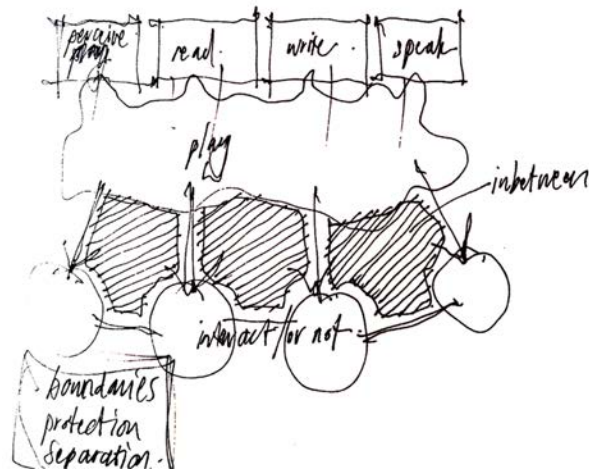 perceive
read.
write.
speak
play
inbetween
interact/or not.
boundaries
protection
separation.